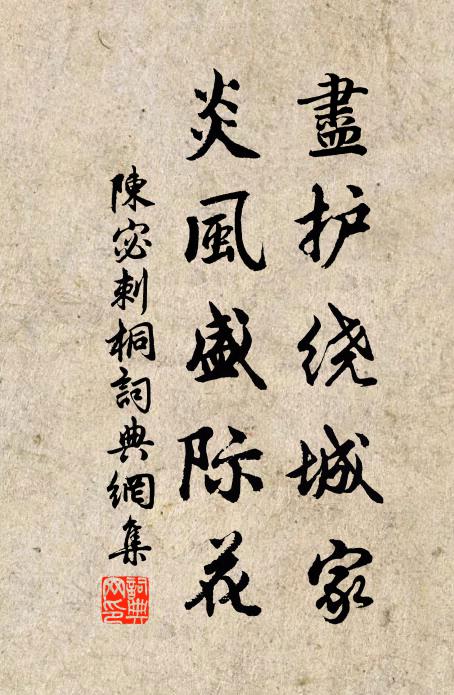 盡护绕城家
炎風盛际花
陳宓刺桐詞典網集
詞典网印